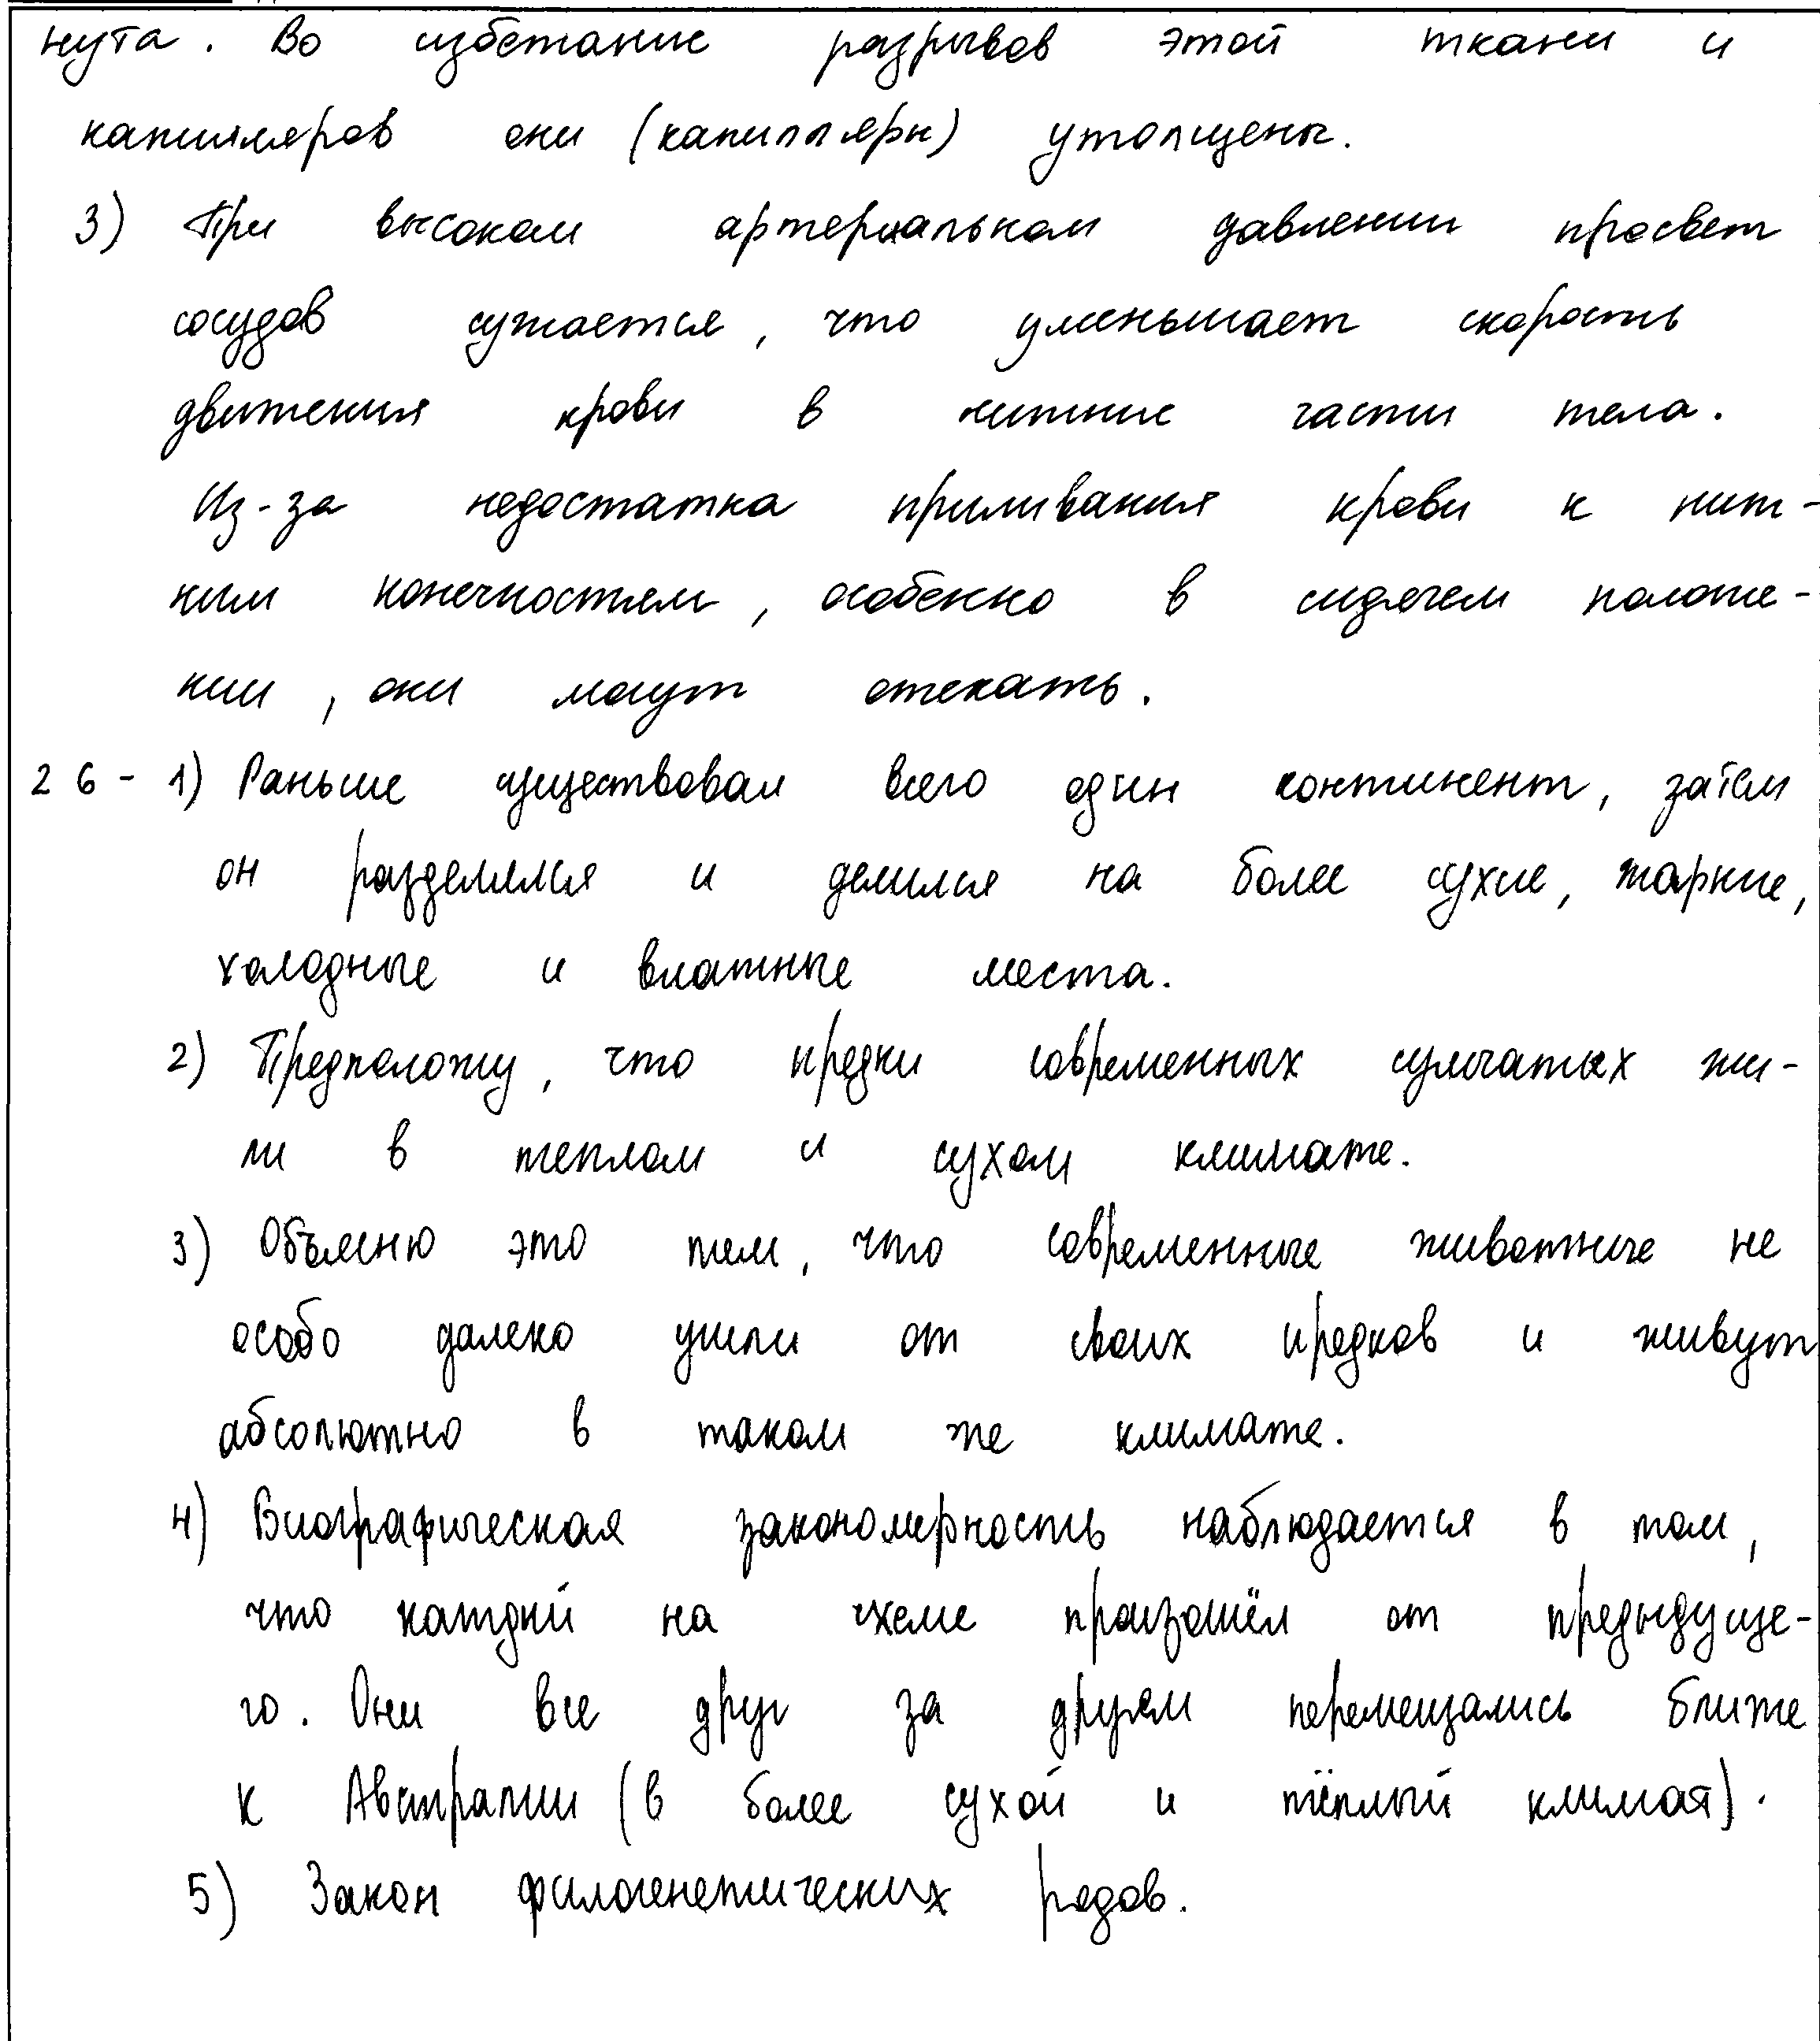 нута. Во избежание разрывов этой ткани и
капилляров они (капилляры) утолщены.
3) При высоком артериальном давлении просвет
сосудов сужается, что уменьшает скорость
движения крови в нижние части тела.
Из-за недостатка приливания крови к ниж-
ним конечностям, особенно в сидячем положе-
нии, они могут отекать.
26 - 1) Раньше существовал всего один континент, затем
он разделялся и делился на более сухие, жаркие,
холодные и влажные места.
2) Предположу, что предки современных сумчатых жи-
ли в теплом и сухом климате.
3) Объясню это тем, что современные животные не
особо далеко ушли от своих предков и живут
абсолютно в таком же климате.
4) Биографическая закономерность наблюдается в том,
что каждый на схеме произошёл от предыдуще-
го. Они все друг за другом перемещались ближе
к Австралии (в более сухой и тёплый климат).
5) Закон филогенетических рядов.